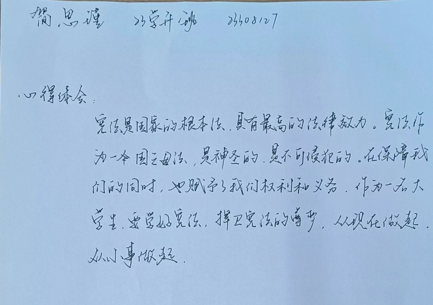 简思谨 23学升班 23308127
心得体会
宪法是国家的根本法,具有最高的法律效力。宪法作
为一本国之母法,是神圣的,是不可侵犯的。在保障我
们的同时,也赋予了我们权利和义务。作为一名大
学生,要学好宪法,捍卫宪法的尊严,从现在做起,
从小事做起.